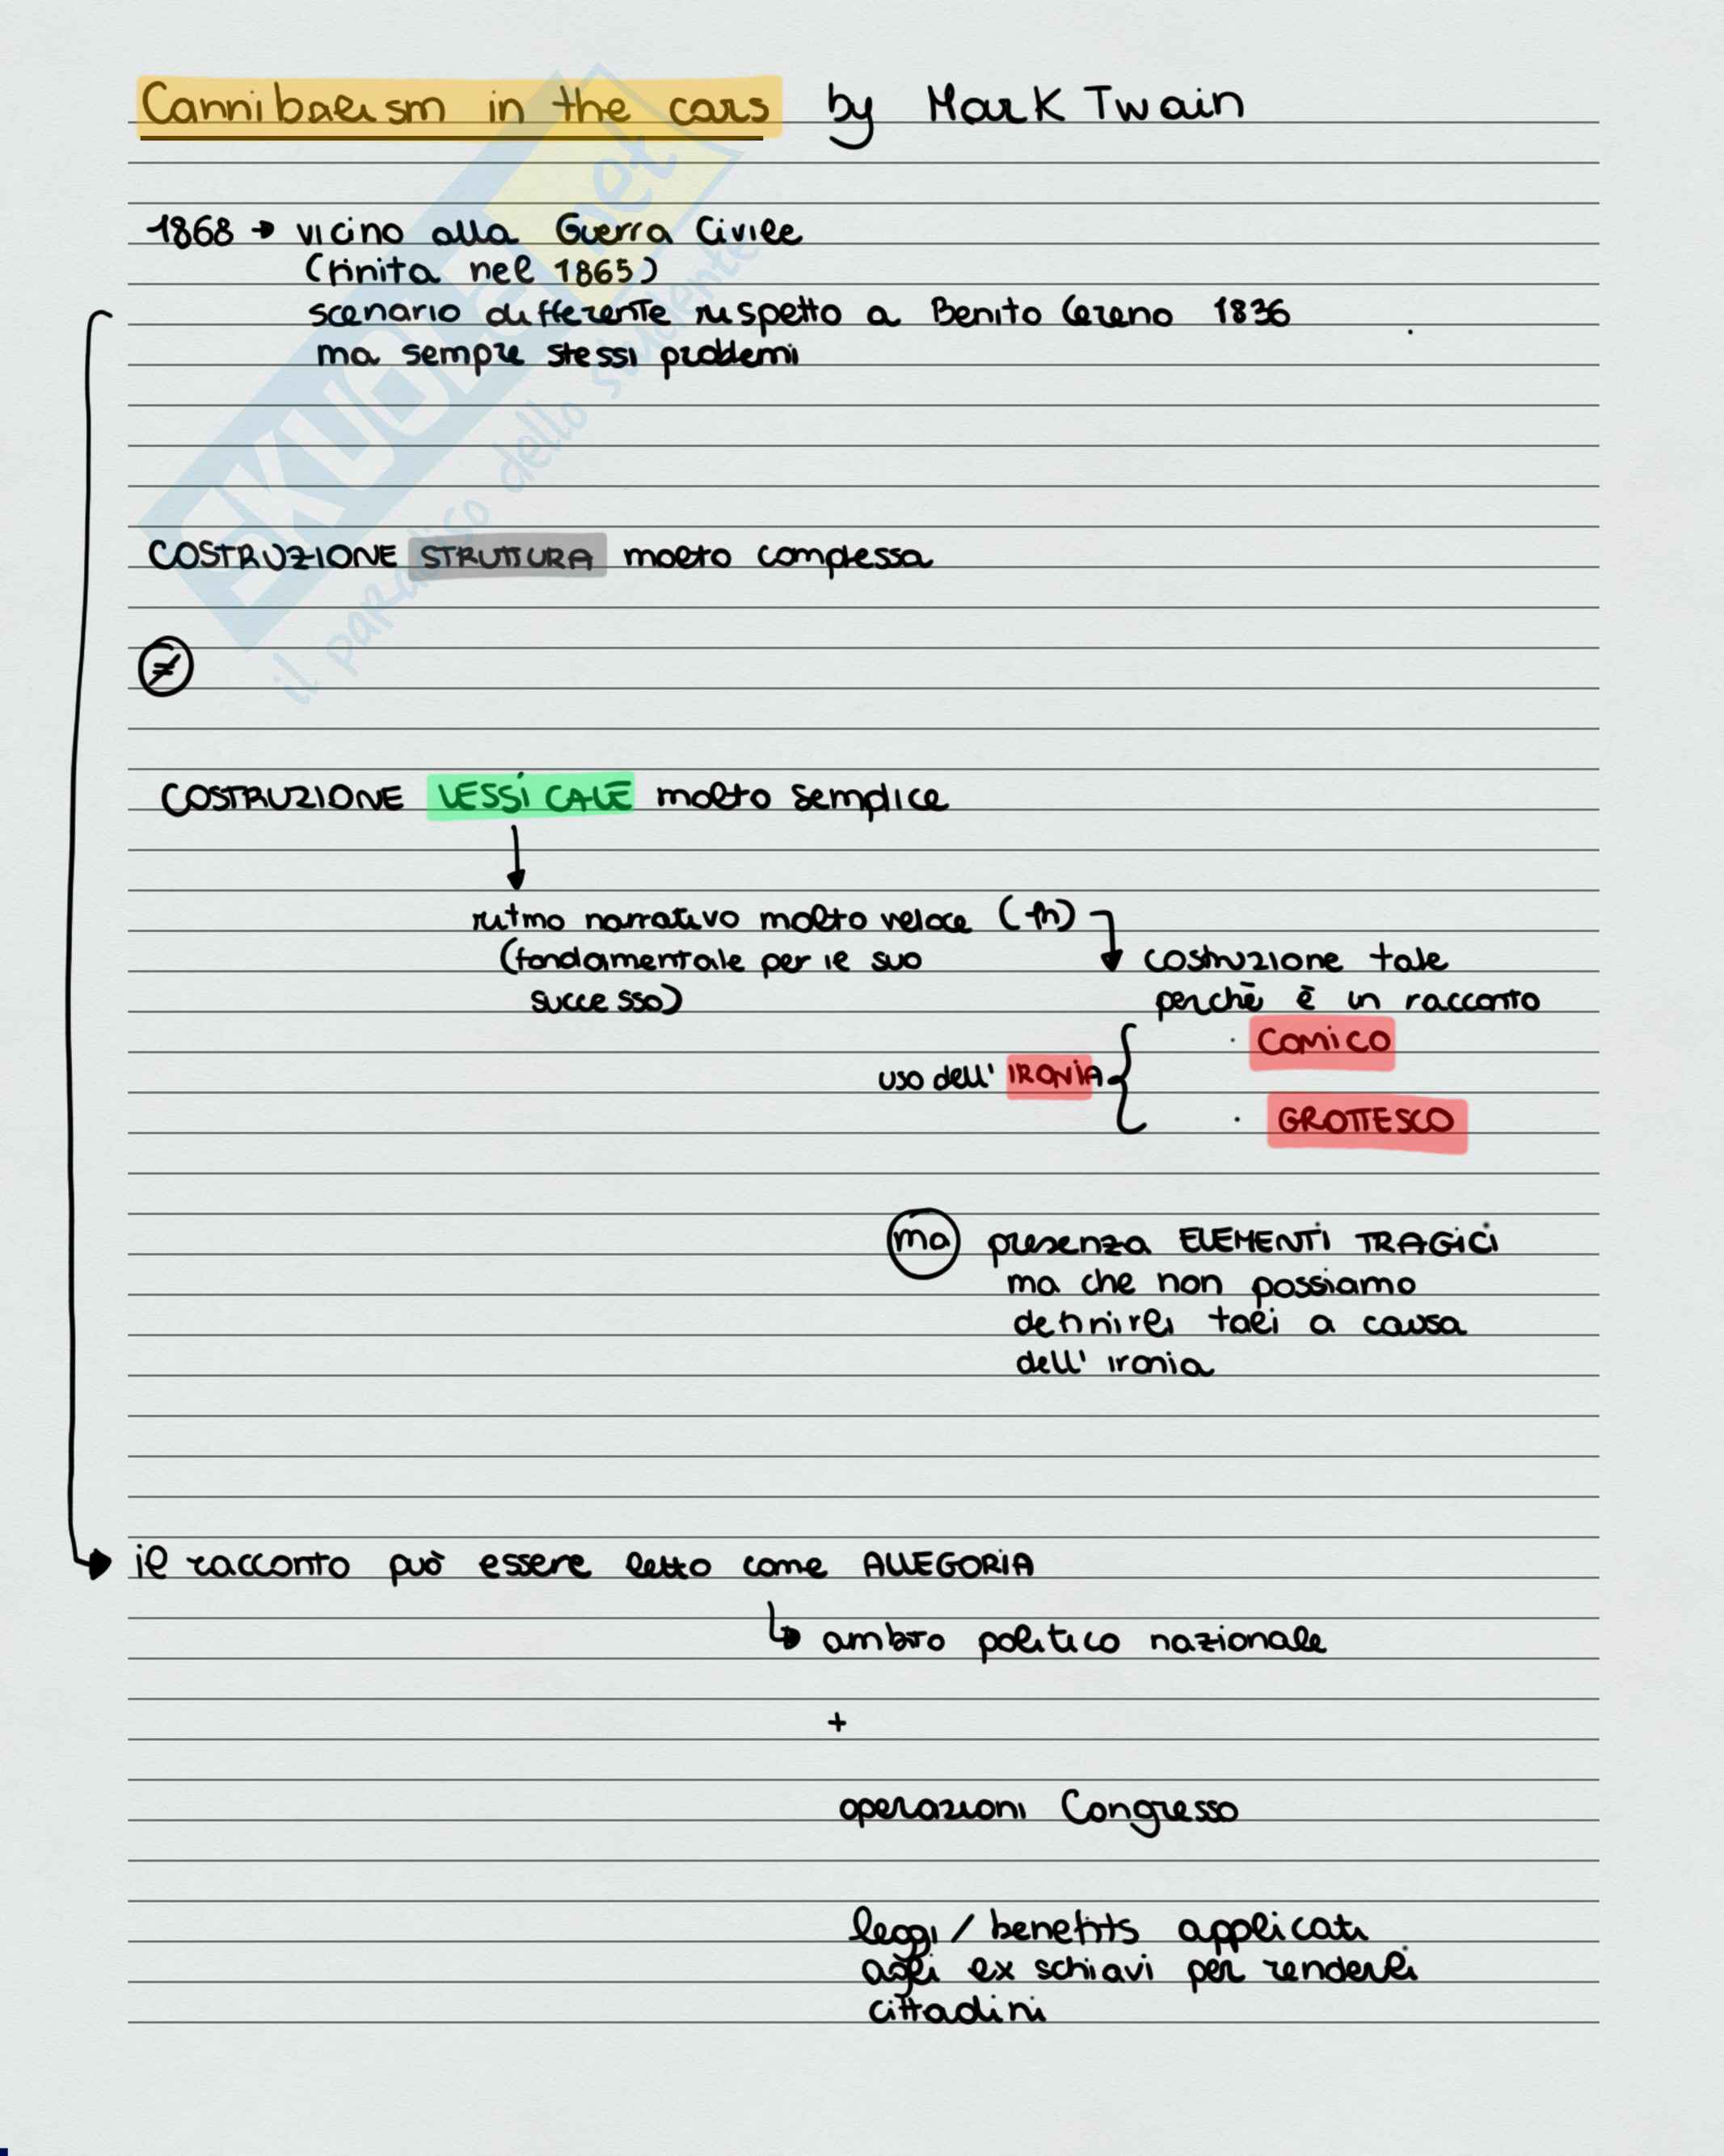 Cannibalism in the cars by Mark Twain
1868 → vicino alla Guerra Civile
(finita nel 1865)
scenario differente rispetto a Benito Cereno 1836
ma sempre stessi problemi
COSTRUZIONE STRUTTURA molto complessa
≠
COSTRUZIONE LESSICALE molto semplice
ritmo narrativo molto veloce
(fondamentale per il suo
successo)
costruzione tale
perchè è un racconto
· COMICO
uso dell' IRONIA
· GROTTESCO
ma presenza ELEMENTI TRAGICI
ma che non possiamo
definirli tali a causa
dell' ironia
il racconto può essere letto come ALLEGORIA
ambito politico nazionale
+
operazioni Congresso
leggi / benefits applicati
agli ex schiavi per renderli
cittadini
SKUOLA.net
il paradiso dello studente